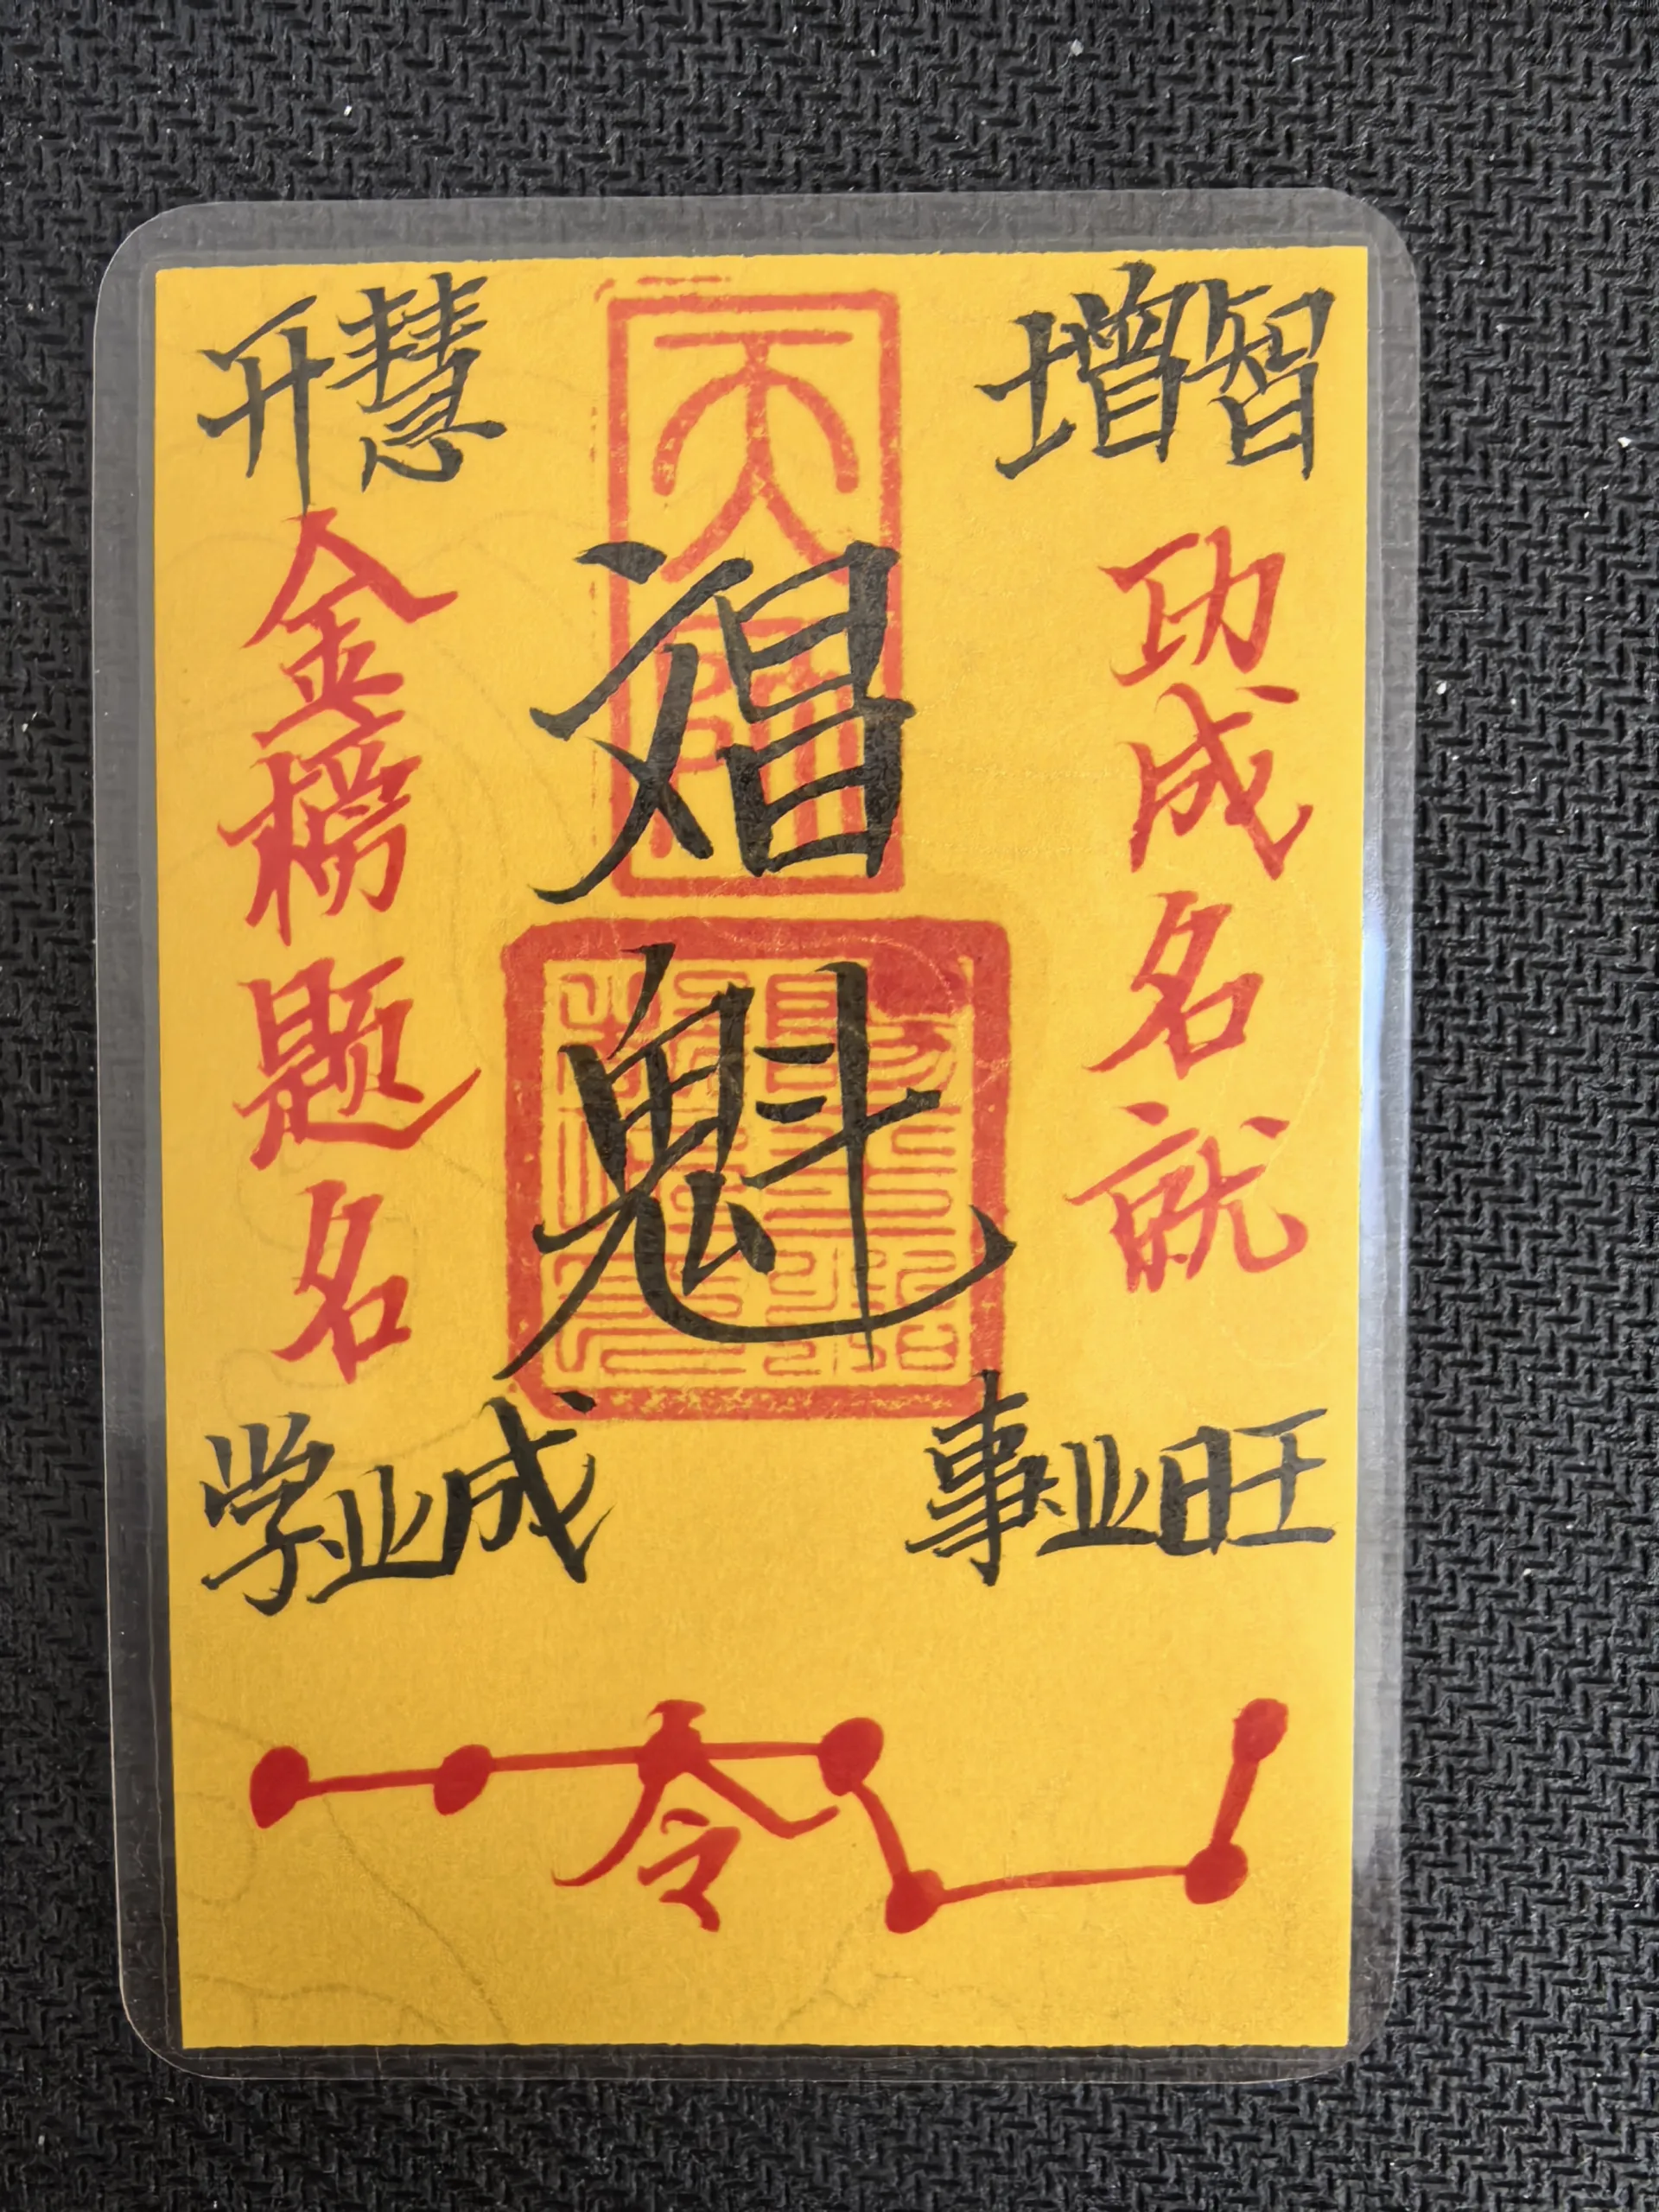 开慧
增智
天師
文昌
魁
金榜题名
功成名就
学业成
事业旺
令